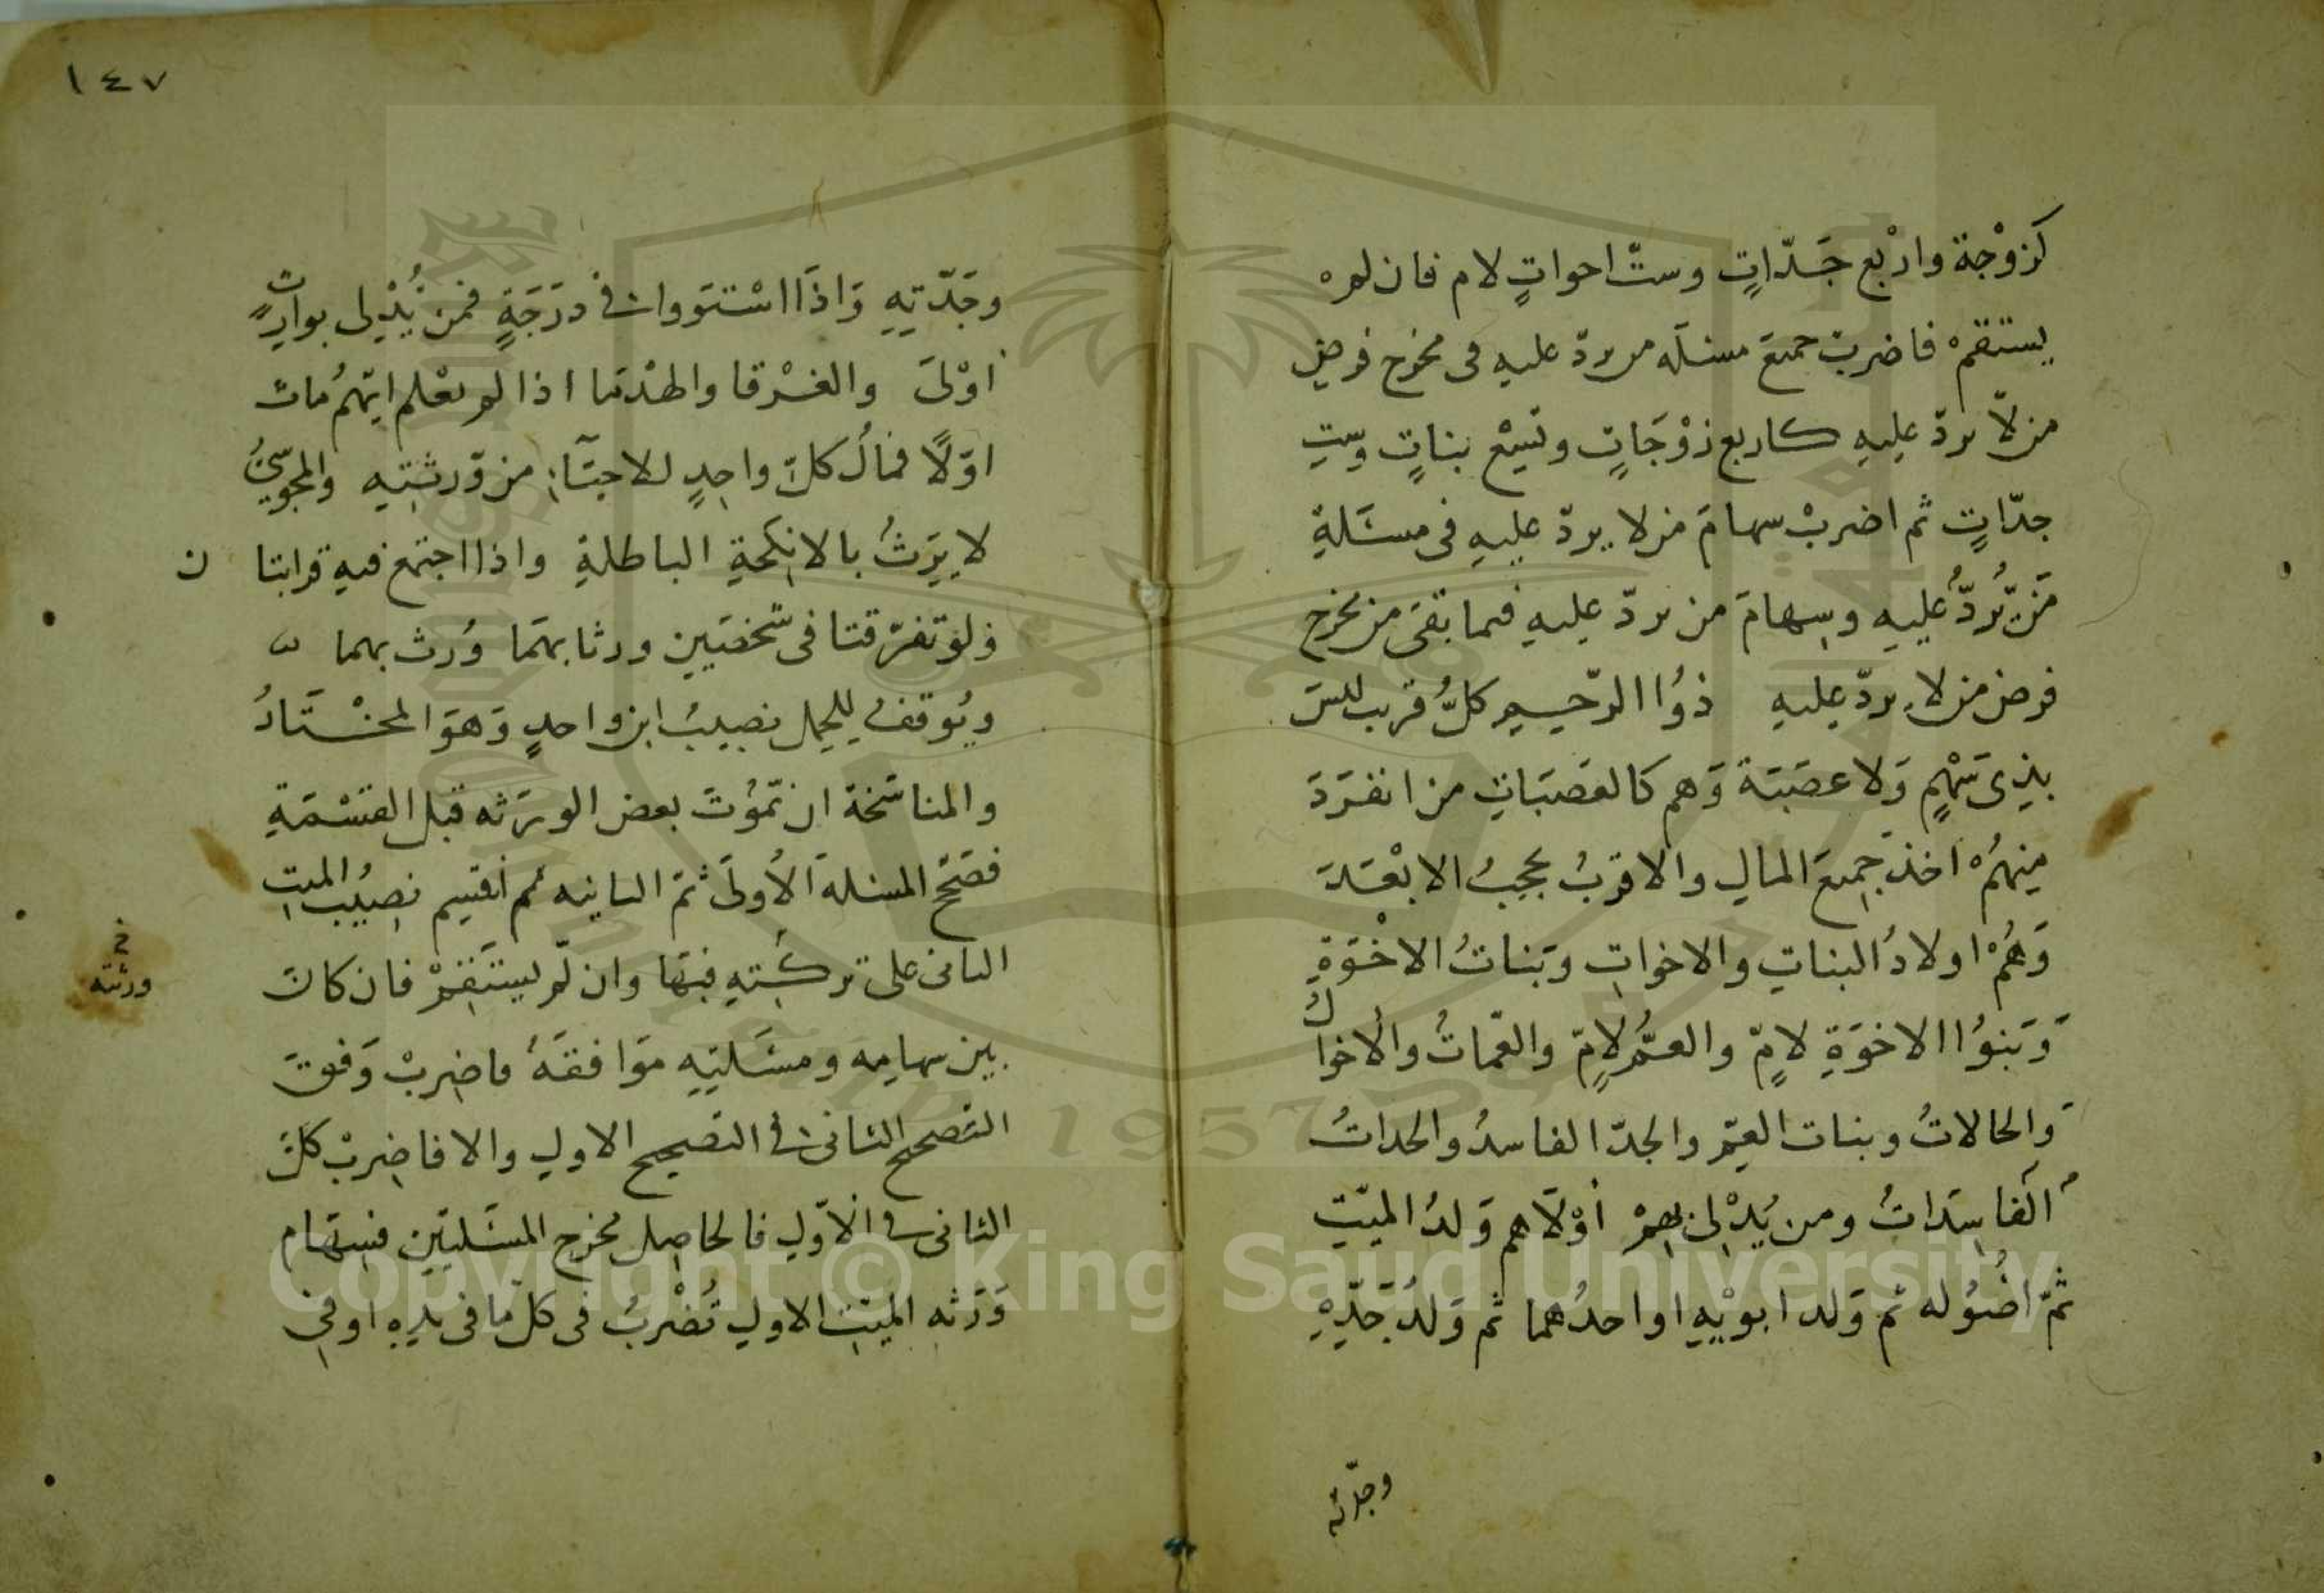 كَزوْجة واربع جَدّاتٍ وستّ اخواتٍ لام فان لم
يستقم فاضرب جميعَ مسئلَه من يردّ عليه فى مخرج فرض
من لّا يردّ عليهِ كاربع زوْجَاتٍ وتسِع بناتٍ وسِتِ
جدّاتٍ ثم اضربْ سهامَ من لا يردّ عليهِ فى مسئَلةِ
مَن يُّردُّ عُليهِ وسِهامَ من يردّ عليهِ فيما بقىَ من مخرج
فرض من لا يردّ عليهِ ذوُا الرّحِيمِ كلُّ قريب ليسَ
بذِى سَهْمٍ وَلا عصَبَة وَهم كالعَصَبَاتِ من انفرَدَ
مِنهُمْ اخذ جمِيعَ المالِ والاقربُ يحجِبُ الابْعَدَ
وَهُمْ اولادُ البناتِ والاخواتِ وبَناتُ الاخْوَةِ
وَبَنوُا الاخوَةِ لامٍّ والعمُّ لامٍّ والعّماتُ والاخوالُ
وَالخالاتُ وبنات العِمّ والجدّ الفاسدُ والجداتُ
الَفاسِدَاتُ ومن يُدْلى بهِمْ أوْلَاهم وَلدُ الميّتِ
ثمّ اصُوُله ثم وَلد ابوَيْهِ او احدُهما ثم وَلدُ جَدّيْهِ
وجدّته
١٤٧
وجَدّتِهِ وَاذَا اسْتوَوا فى درَجَةٍ فمن يُدْلِى بوارِثٍ
اوْلىَ والغرْقا والهدْمَا اذا لم يعْلم ايّهمُ مات
اوّلًا فمالُ كلّ واحِدٍ للاحيَآءِ من وّرثتِهِ والمجوُسِىُّ
لا يرَثُ بالانكِحةِ الباطلةِ واذا اجتمع فيهِ قرابتا ن
ولوْ تفرّقتا فى شخصَيِن ورثا بهمَا وُرث بهما
ويُوقف للحمِل نصيبُ ابن واحدٍ وَهوَ المخْتَارُ
والمناسَخة ان تّموُتَ بعض الورَثه قبل القسْمَةِ
فصَحّحِ المسئلة الأولَى ثمّ الثانيه ثم أقسِم نصِيُب الميِّتِ
الثانى على تركتِهِ فبَها وان لّم يستَقِمْ فان كانَ
خ
ورثته
بين سهامِه ومسئَلتِهِ موَافقَهُ فاضرِبْ وَفقَ
التصحيح الثانى فى التصَحِيح الاولِ والا فاضِربْ كلَّ
الثانى فى الاوّلِ فالحاصِل مخرج المسئَلتَين فسِهَام
وَرَثهِ الميّتِ الاولِ تُضْربُ فى كل مَا فى يدِهِ او فى
Copyright © King Saud University
1957